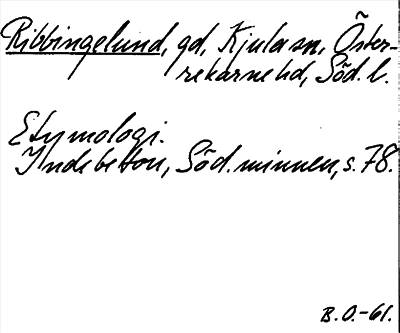 Ribbingelund, gd, Kjula sn, Öster-
rekarne hd, Söd. l.
Etymologi.
Indebetou, Söd. minnen, s. 78.
B. O.-61.